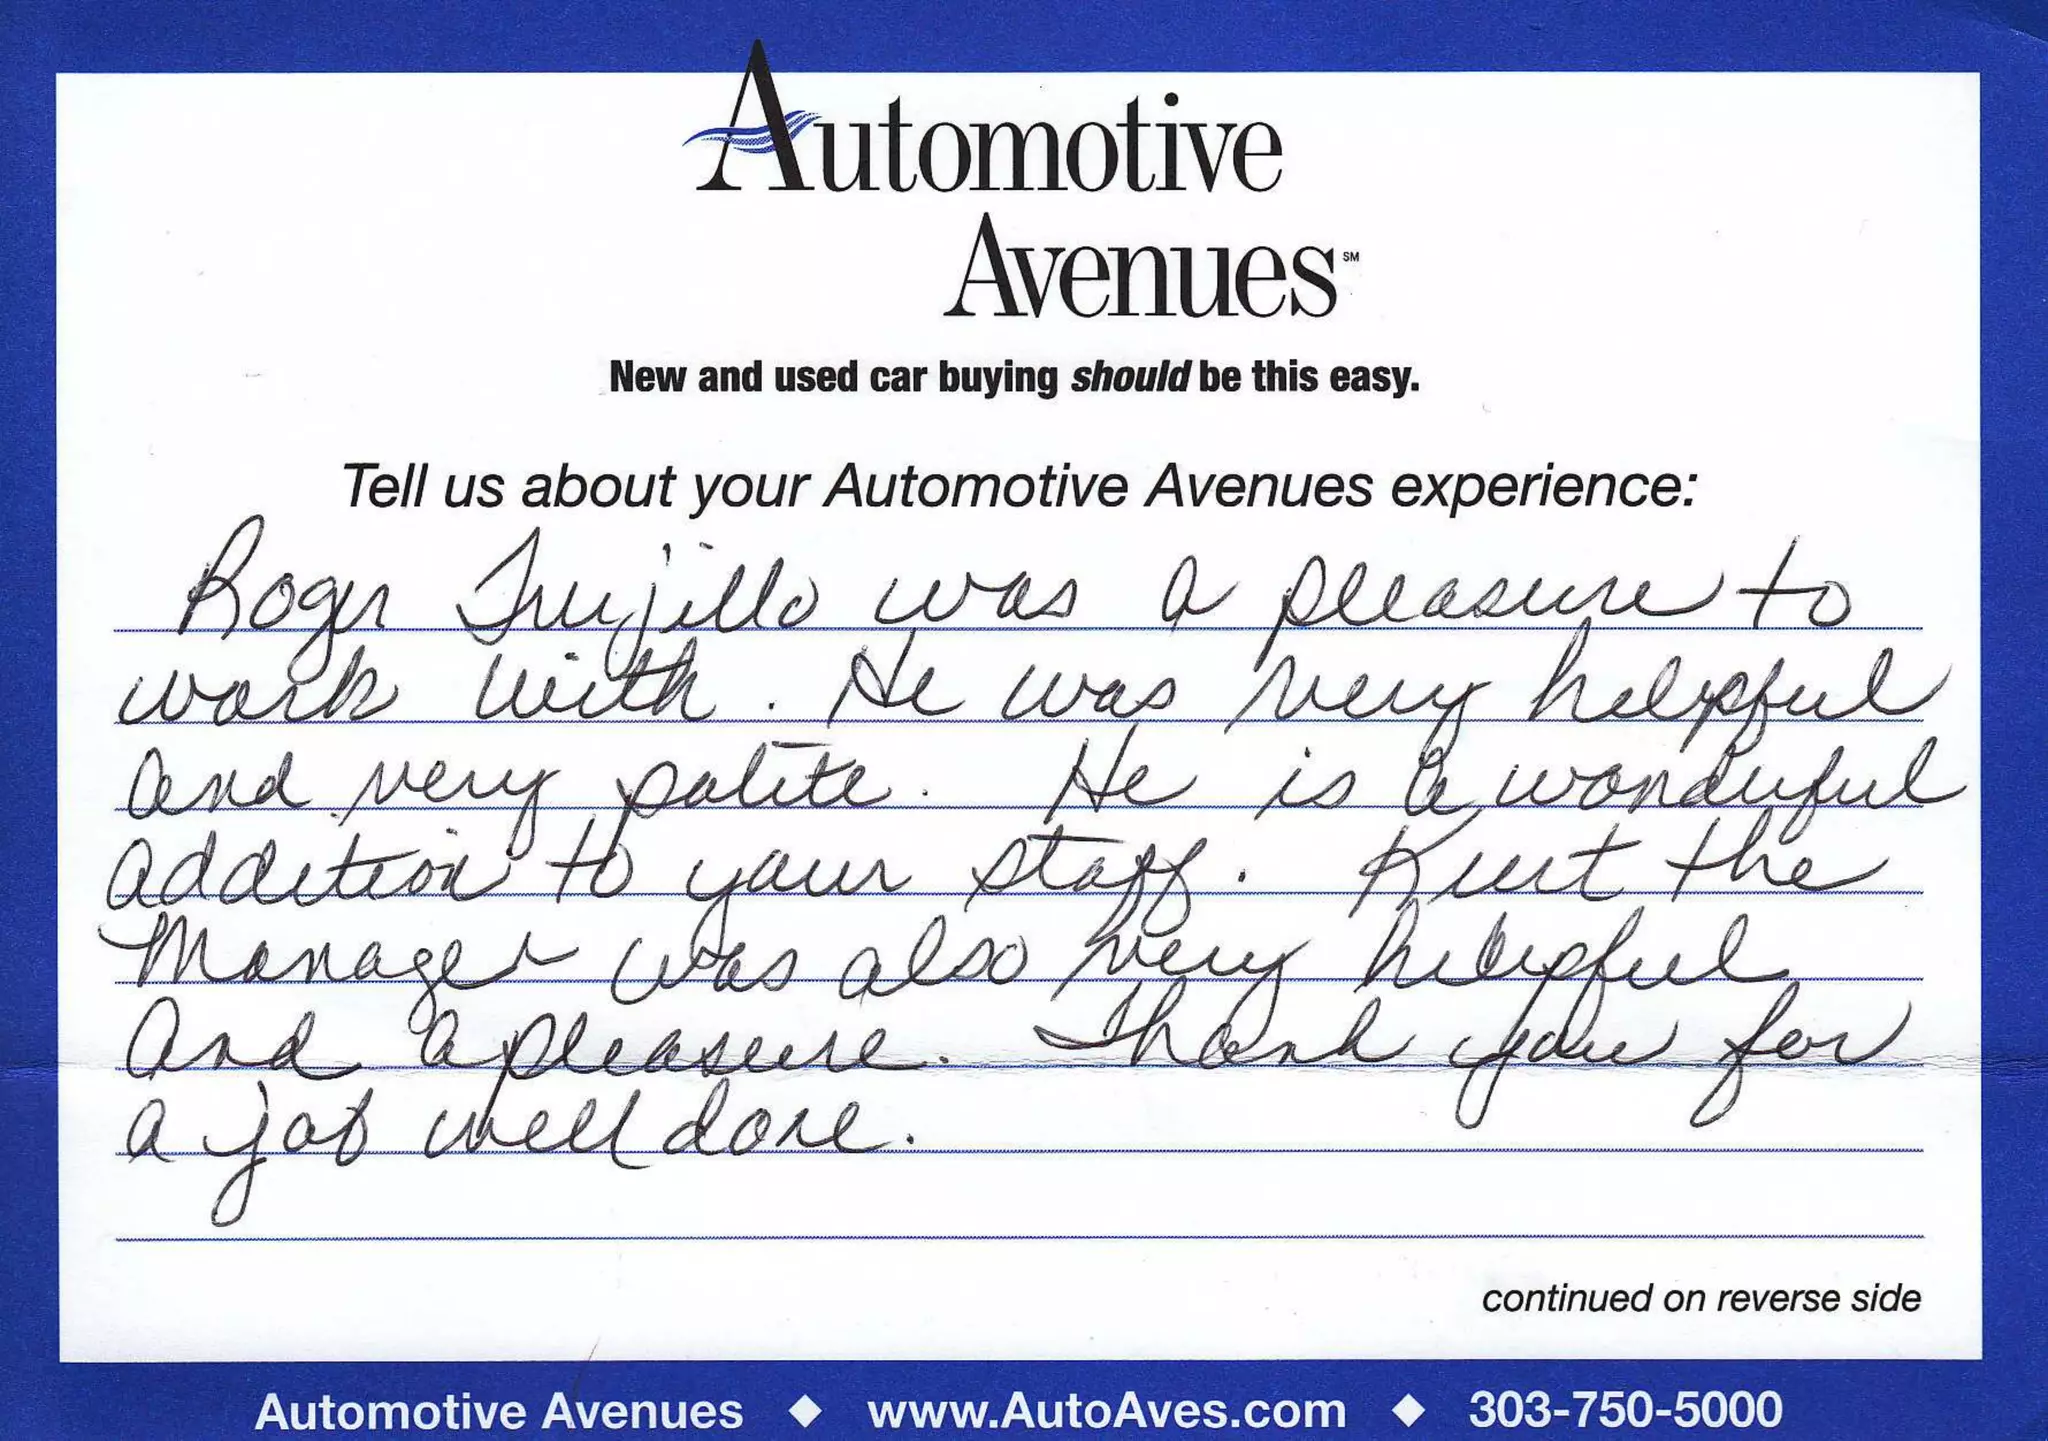 Automotive
Avenues℠
New and used car buying should be this easy.
Tell us about your Automotive Avenues experience:
Roger Trujillo was a pleasure to
work with. He was very helpful
and very polite. He is a wonderful
addition to your staff. Kurt the
Manager was also very helpful
and a pleasure. Thank you for
a job well done.
continued on reverse side
Automotive Avenues ◆ www.AutoAves.com ◆ 303-750-5000